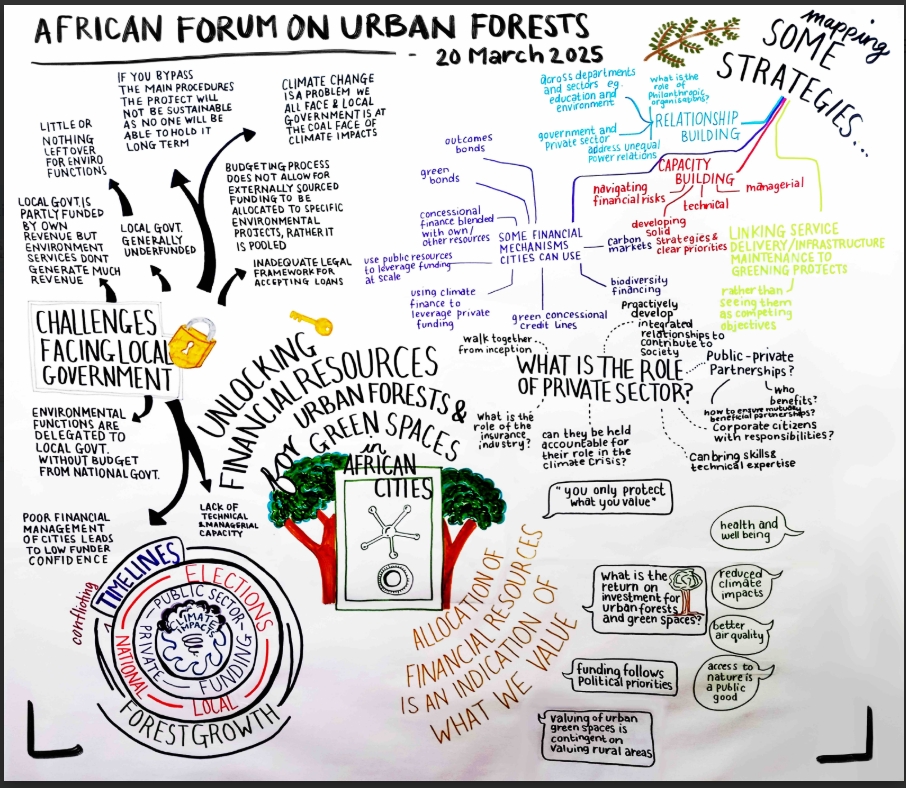 AFRICAN FORUM ON URBAN FORESTS
20 March 2025
mapping
SOME
STRATEGIES...
LITTLE OR
NOTHING
LEFT OVER
FOR ENVIRO
FUNCTIONS
IF YOU BYPASS
THE MAIN PROCEDURES
THE PROJECT WILL
NOT BE SUSTAINABLE
AS NO ONE WILL BE
ABLE TO HOLD IT
LONG TERM
CLIMATE CHANGE
IS A PROBLEM WE
ALL FACE & LOCAL
GOVERNMENT IS AT
THE COAL FACE OF
CLIMATE IMPACTS
LOCAL GOVT. IS
PARTLY FUNDED
BY OWN
REVENUE BUT
ENVIRONMENT
SERVICES DONT
GENERATE MUCH
REVENUE
LOCAL GOVT.
GENERALLY
UNDERFUNDED
BUDGETING PROCESS
DOES NOT ALLOW FOR
EXTERNALLY SOURCED
FUNDING TO BE
ALLOCATED TO SPECIFIC
ENVIRONMENTAL
PROJECTS, RATHER IT
IS POOLED
INADEQUATE LEGAL
FRAMEWORK FOR
ACCEPTING LOANS
CHALLENGES
FACING LOCAL
GOVERNMENT
ENVIRONMENTAL
FUNCTIONS ARE
DELEGATED TO
LOCAL GOVT.
WITHOUT BUDGET
FROM NATIONAL GOVT.
POOR FINANCIAL
MANAGEMENT
OF CITIES LEADS
TO LOW FUNDER
CONFIDENCE
LACK OF
TECHNICAL
& MANAGERIAL
CAPACITY
UNLOCKING
FINANCIAL RESOURCES
for URBAN FORESTS &
GREEN SPACES
in
AFRICAN
CITIES
conflicting
TIMELINES
ELECTIONS
NATIONAL
LOCAL
PUBLIC SECTOR
PRIVATE
FUNDING
CLIMATE
IMPACTS
FOREST GROWTH
ALLOCATION OF
FINANCIAL RESOURCES
IS AN INDICATION OF
WHAT WE VALUE
outcomes
bonds
green
bonds
concessional
finance blended
with own/
other resources
use public resources
to leverage funding
at scale
using climate
finance to
leverage private
funding
SOME FINANCIAL
MECHANISMS
CITIES CAN USE
carbon
markets
biodiversity
financing
green concessional
credit lines
across departments
and sectors eg.
education and
environment
what is the
role of
Philanthropic
organisations?
government and
Private sector
address unequal
Power relations
RELATIONSHIP
BUILDING
CAPACITY
BUILDING
navigating
financial risks
technical
managerial
developing
solid
strategies &
clear priorities
LINKING SERVICE
DELIVERY/INFRASTRUCTURE
MAINTENANCE TO
GREENING PROJECTS
rather than
seeing them
as competing
objectives
WHAT IS THE ROLE
OF PRIVATE SECTOR?
walk together
from inception
Proactively
develop
integrated
relationships to
contribute to
Society
Public-private
Partnerships?
who
benefits?
how to ensure mutually
beneficial partnerships?
Corporate citizens
with responsibilities?
Can bring skills &
technical expertise
can they be held
accountable for
their role in the
climate Crisis?
what is the
role of the
insurance
industry?
"you only protect
what you value"
what is the
return on
investment for
urban forests
and green spaces?
health and
well being
reduced
climate
impacts
better
air quality
access to
nature is
a public
good
funding follows
Political priorities
valuing of urban
green spaces is
contingent on
valuing rural areas